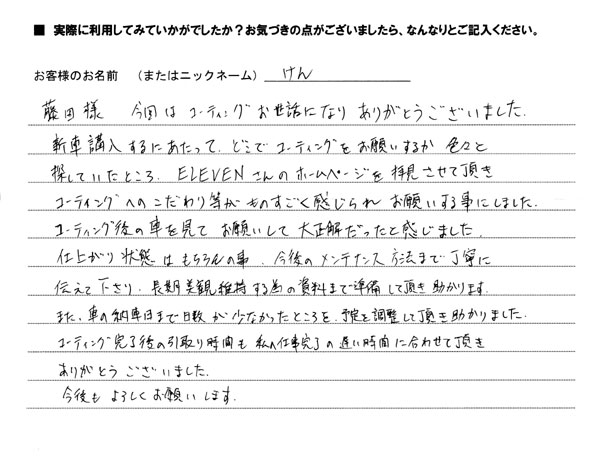 ■ 実際に利用してみていかがでしたか？お気づきの点がございましたら、なんなりとご記入ください。
お客様のお名前 （またはニックネーム） けん
藤田様 今回は コーティング お世話になり ありがとうございました.
新車講入するにあたって、どこで コーティングを お願いするか 色々と
探していたところ、ELEVENさんのホームページを 拝見させて頂き
コーティングへのこだわり等が ものすごく感じられ お願いする事にしました.
コーティング後の車を見て お願いして 大正解だったと感じました.
仕上がり状態は もちろんの事、今後の メンテナンス方法まで丁寧に
伝えて下さり、長期美観維持する為の資料まで準備して頂き助かります.
また、車の納車日まで日数が少なかったところを、予定を調整して頂き助かりました.
コーティング完了後の引取り時間も 私の仕事完了の 遅い時間に合わせて頂き
ありがとうございました.
今後も よろしくお願いします.